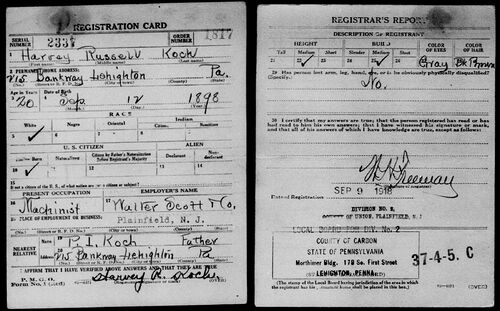 REGISTRATION CARD
SERIAL NUMBER 2337
1817
1 Harvey Russell Koch
(First name) (Middle name) (Last name)
2 PERMANENT HOME ADDRESS:
215 Bankway Lehighton Pa.
Age in Years Date of Birth
20 Sep 12 1898
(Month) (Day) (Year)
RACE
White Negro Oriental Indian
Citizen Noncitizen
U. S. CITIZEN ALIEN
Native Born Naturalized Citizen by Father's Naturalization Before Registrant's Majority Declarant Non-declarant
If not a citizen of the U. S., of what nation are you a citizen or subject?
PRESENT OCCUPATION EMPLOYER'S NAME
16 Machinist 17 Walter Scott Co.
18 PLACE OF EMPLOYMENT OR BUSINESS:
Plainfield, N. J.
NEAREST RELATIVE
Name 19 P. I. Koch Father
Address 20 215 Bankway Lehighton Pa
I AFFIRM THAT I HAVE VERIFIED ABOVE ANSWERS AND THAT THEY ARE TRUE
P. M. G. O.
Form No. 1 (Red) Harvey R. Koch
(OVER)
REGISTRAR'S REPORT
DESCRIPTION OF REGISTRANT
HEIGHT BUILD COLOR OF EYES COLOR OF HAIR
Tall Medium Short Slender Medium Stout
21 22 23 24 25 26 27 Gray 28 Bk Brown
29 Has person lost arm, leg, hand, eye, or is he obviously physically disqualified?
No.
30 I certify that my answers are true; that the person registered has read or has had read to him his own answers; that I have witnessed his signature or mark, and that all of his answers of which I have knowledge are true, except as follows:
(Signature of Registrar)
SEP 9 1918
DIVISION No. 2,
OF UNION, PLAINFIELD, N. J.
LOCAL BOARD FOR DIV. No. 2
COUNTY OF CARBON
STATE OF PENNSYLVANIA
Morthimer Bldg. 179 So. First Street
LEHIGHTON, PENNA.
37-4-5. C
(The stamp of the Local Board having jurisdiction of the area in which the registrant has his permanent home shall be placed in this box.)
(OVER)